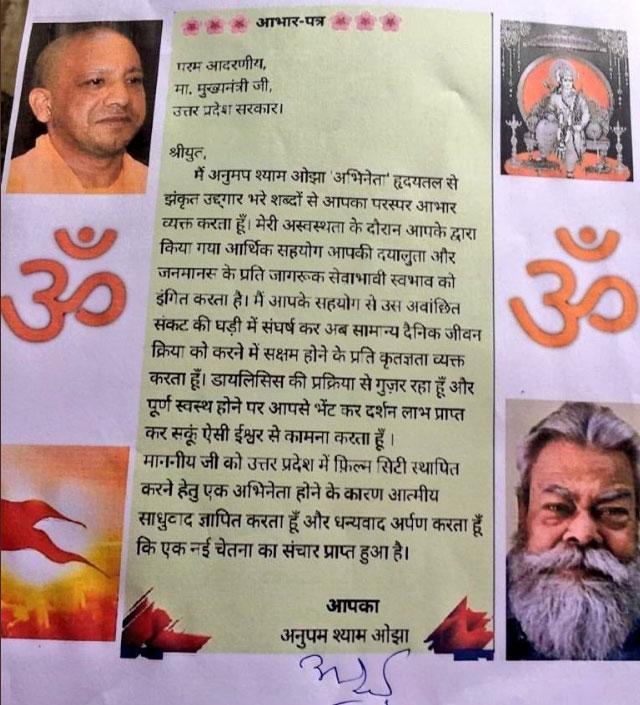 आभार-पत्र
परम आदरणीय,
मा. मुख्यमंत्री जी,
उत्तर प्रदेश सरकार।
श्रीयुत,
मैं अनुमप श्याम ओझा 'अभिनेता' हृदयतल से
झंकृत उद्गार भरे शब्दों से आपका परस्पर आभार
व्यक्त करता हूँ। मेरी अस्वस्थता के दौरान आपके द्वारा
किया गया आर्थिक सहयोग आपकी दयालुता और
जनमानस के प्रति जागरूक सेवाभावी स्वभाव को
इंगित करता है। मैं आपके सहयोग से उस अवांछित
संकट की घड़ी में संघर्ष कर अब सामान्य दैनिक जीवन
क्रिया को करने में सक्षम होने के प्रति कृतज्ञता व्यक्त
करता हूँ। डायलिसिस की प्रक्रिया से गुज़र रहा हूँ और
पूर्ण स्वस्थ होने पर आपसे भेंट कर दर्शन लाभ प्राप्त
कर सकूं ऐसी ईश्वर से कामना करता हूँ ।
माननीय जी को उत्तर प्रदेश में फ़िल्म सिटी स्थापित
करने हेतु एक अभिनेता होने के कारण आत्मीय
साधुवाद ज्ञापित करता हूँ और धन्यवाद अर्पण करता हूँ
कि एक नई चेतना का संचार प्राप्त हुआ है।
आपका
अनुपम श्याम ओझा
ॐ
ॐ